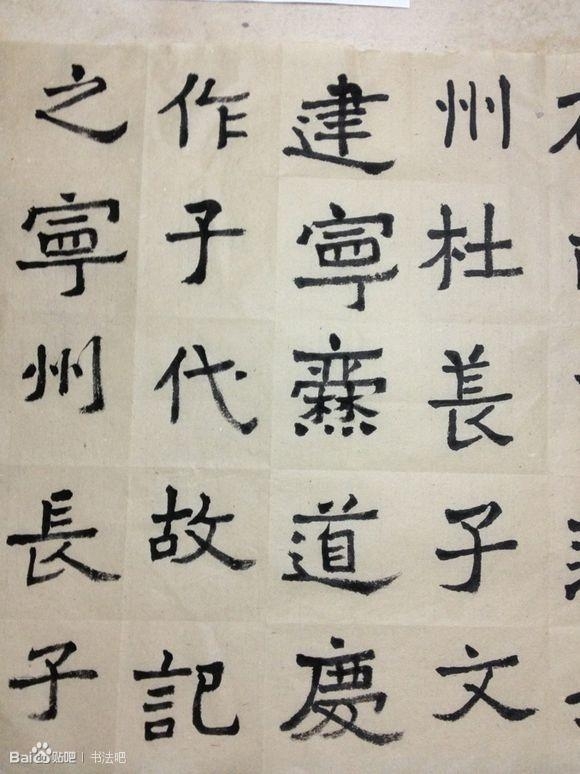 州杜萇子文
建寧爨道慶
作子代故記
之寧州長子
Bai贴吧 | 书法吧